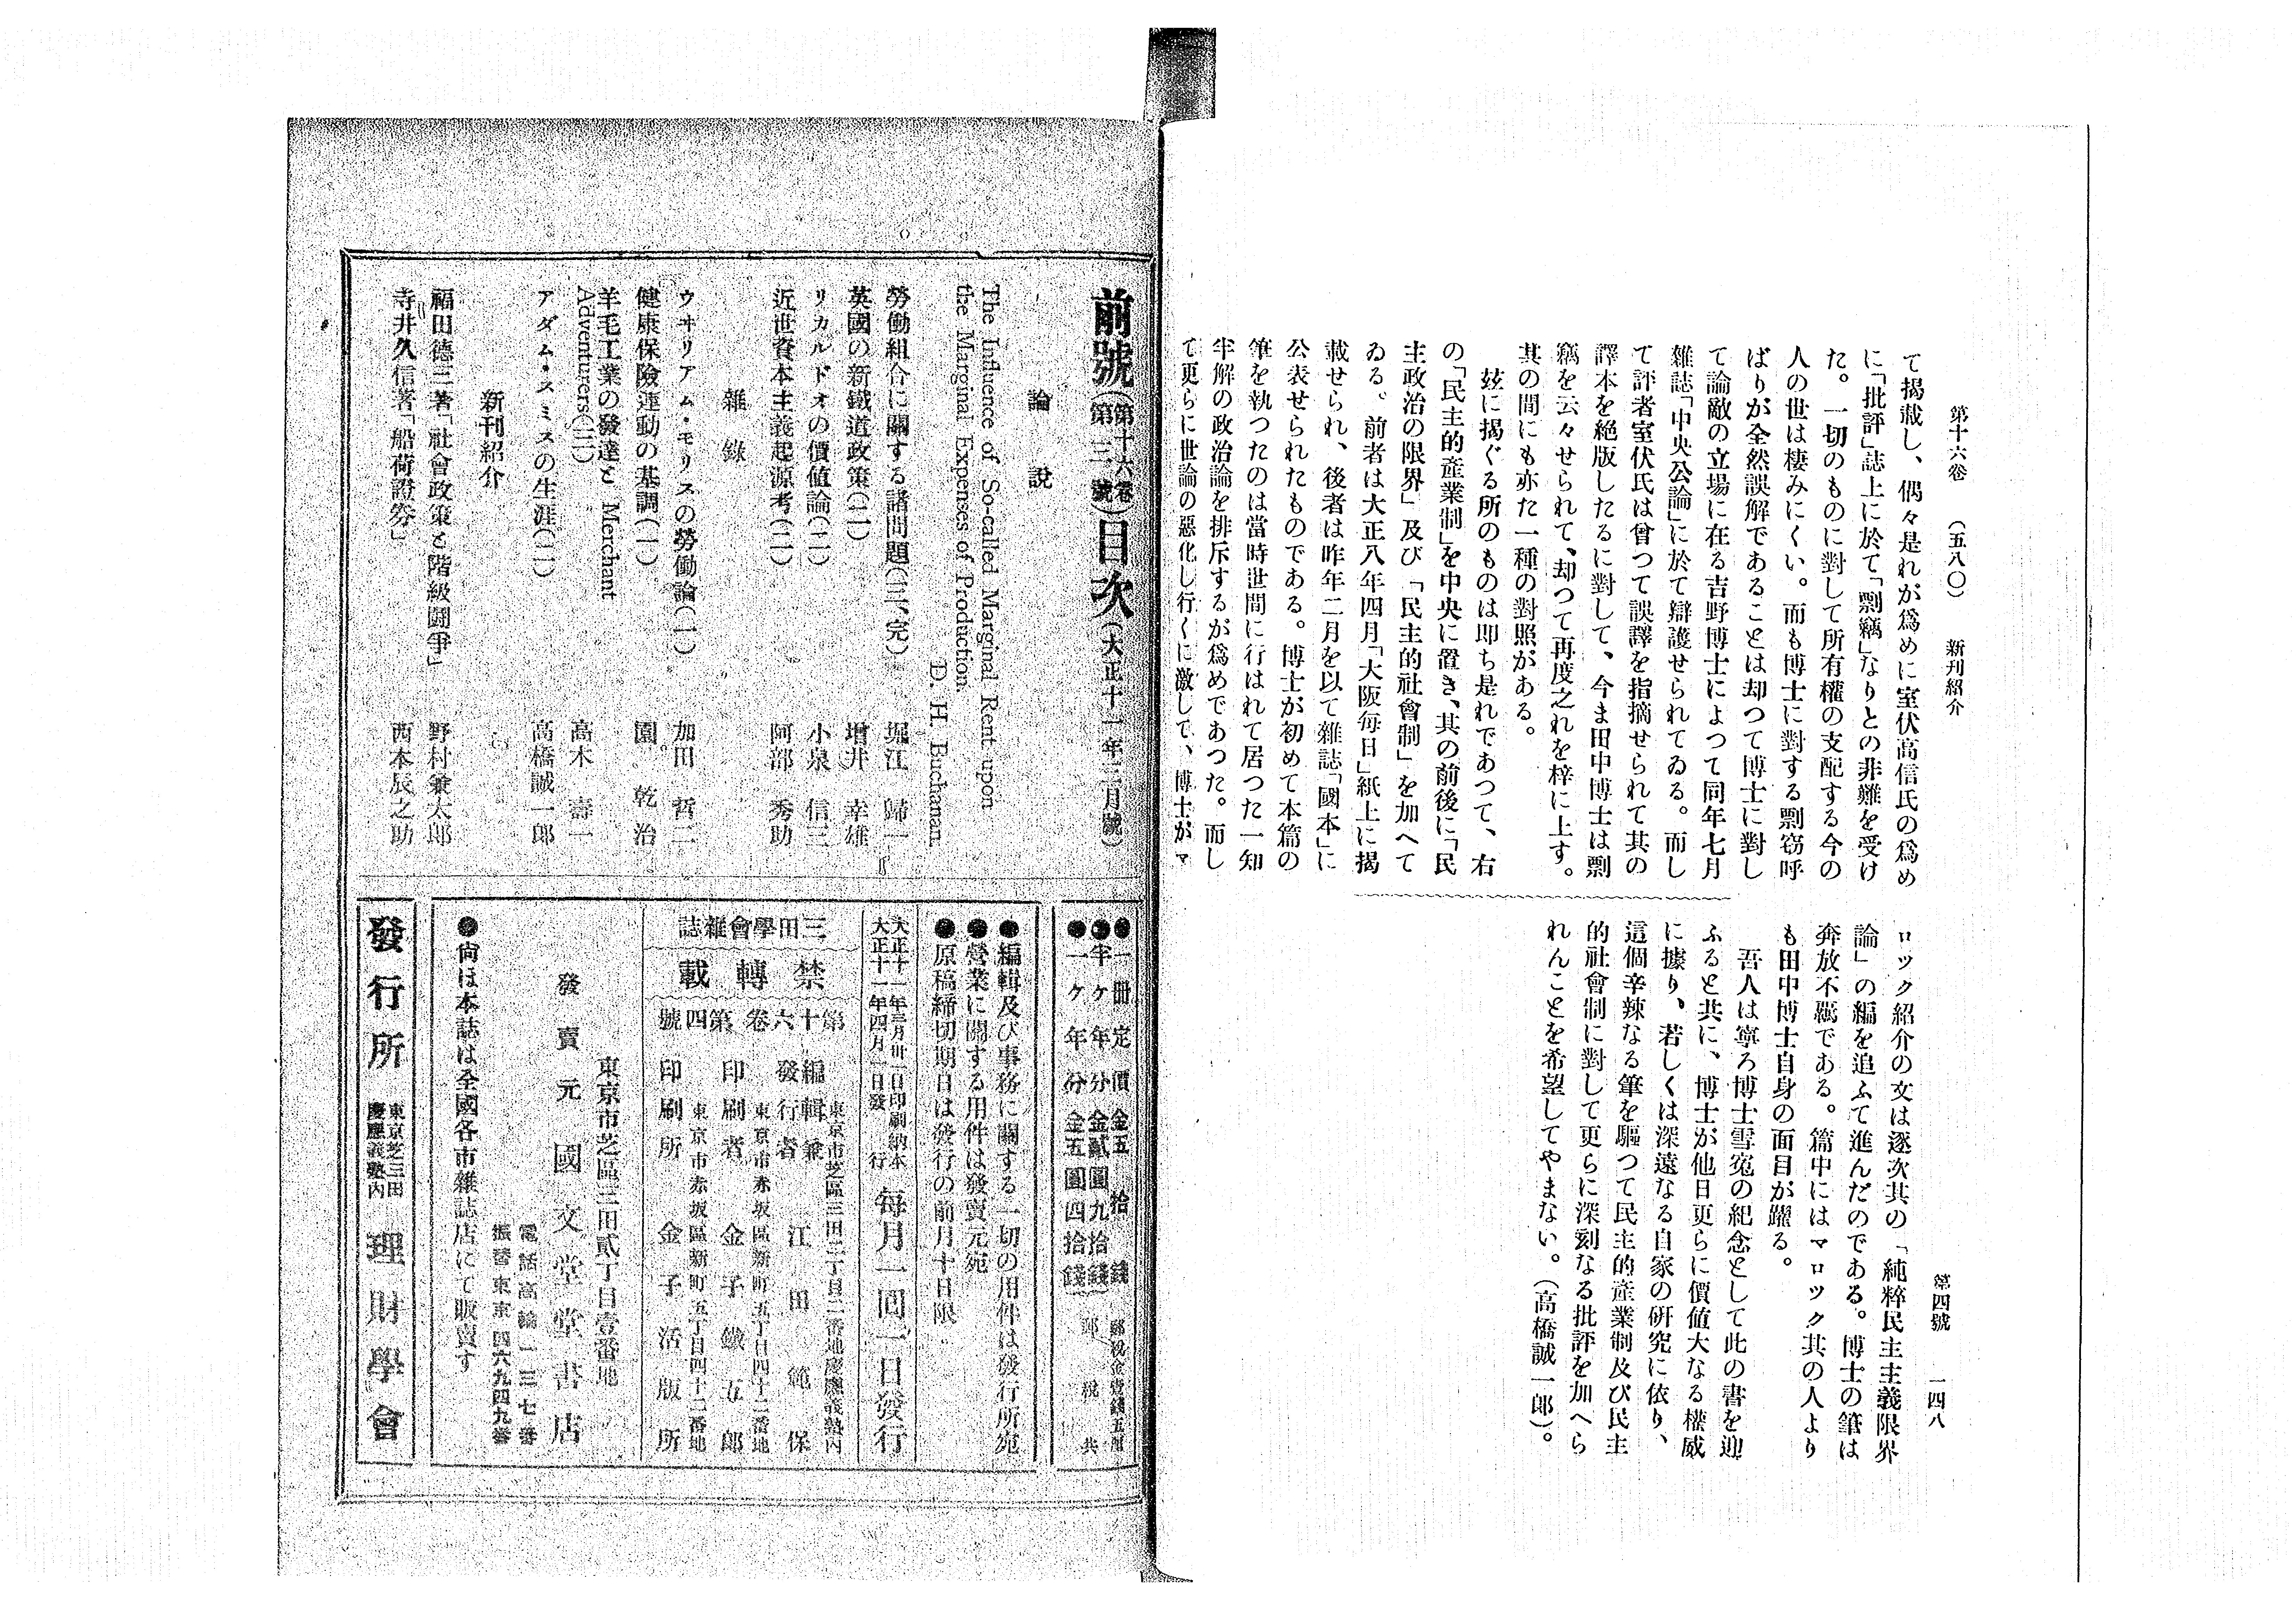 第十六卷　（五八〇）　新刊紹介　第四號　一四八
て揭載し、偶々是れが爲めに室伏高信氏の爲め
に「批評」誌上に於て「剽竊」なりとの非難を受け
た。一切のものに對して所有權の支配する今の
人の世は棲みにくい。而も博士に對する剽窃呼
ばりが全然誤解であることは却つて博士に對し
て論敵の立場に在る吉野博士によつて同年七月
雜誌「中央公論」に於て辯護せられてゐる。而し
て評者室伏氏は曾つて誤譯を指摘せられて其の
譯本を絕版したるに對して、今ま田中博士は剽
竊を云々せられて、却つて再度之れを梓に上す。
其の間にも亦た一種の對照がある。
玆に揭ぐる所のものは卽ち是れであつて、右
の「民主的產業制」を中央に置き、其の前後に「民
主政治の限界」及び「民主的社會制」を加へて
ゐる。前者は大正八年四月「大阪每日」紙上に揭
載せられ、後者は昨年二月を以て雜誌「國本」に
公表せられたものである。博士が初めて本篇の
筆を執つたのは當時世間に行はれて居つた一知
半解の政治論を排斥するが爲めであつた。而し
て更らに世論の惡化し行くに激して、博士がマ
ロック紹介の文は逐次其の「純粹民主主義限界
論」の編を追ふて進んだのである。博士の筆は
奔放不羈である。篇中にはマロック其の人より
も田中博士自身の面目が躍る。
吾人は寧ろ博士雪寃の紀念として此の書を迎
ふると共に、博士が他日更らに價値大なる權威
に據り、若しくは深遠なる自家の硏究に依り、
這個辛辣なる筆を驅つて民主的產業制及び民主
的社會制に對して更らに深刻なる批評を加へら
れんことを希望してやまない。（高橋誠一郎）。
前號（第十六卷第三號）目次（大正十一年三月號）
論說
The Influence of So-called Marginal Rent upon
the Marginal Expenses of Production.
D. H. Buchanan.
勞働組合に關する諸問題（三、完）　堀江歸一
英國の新鐵道政策（二）　增井幸雄
リカルドオの價値論（二）　小泉信三
近世資本主義起源考（二）　阿部秀助
雜錄
ウヰリアム・モリスの勞働論（一）　加田哲二
健康保險運動の基調（一）　園乾治
羊毛工業の發達と Merchant
Adventurers（三）　高木壽一
アダム・スミスの生涯（二）　高橋誠一郎
新刊紹介
福田德三著「社會政策と階級鬪爭」　野村兼太郎
寺井久信著「船荷證券」　西本辰之助
●一册定價金五拾錢　郵稅金壹錢五厘
●半ヶ年分金貳圓九拾錢
●一ヶ年分金五圓四拾錢　郵稅共
●編輯及び事務に關する一切の用件は發行所宛
●營業に關する用件は發賣元宛
●原稿締切期日は發行の前月十日限
大正十一年三月卅一日印刷納本
大正十一年四月一日發行
每月一回一日發行
三田學會雜誌
禁轉載
第十六卷第四號
東京市芝區三田二丁目二番地慶應義塾內
編輯兼
發行者　江田範保
東京市赤坂區新町五丁目四十二番地
印刷者　金子鐵五郎
東京市赤坂區新町五丁目四十二番地
印刷所　金子活版所
東京市芝區三田貳丁目壹番地
發賣元　國文堂堂書店
電話高輪一三七番
振替東京四六九四九番
●尙ほ本誌は全國各市雜誌店にて販賣す
發行所　東京芝三田
慶應義塾內　理財學會